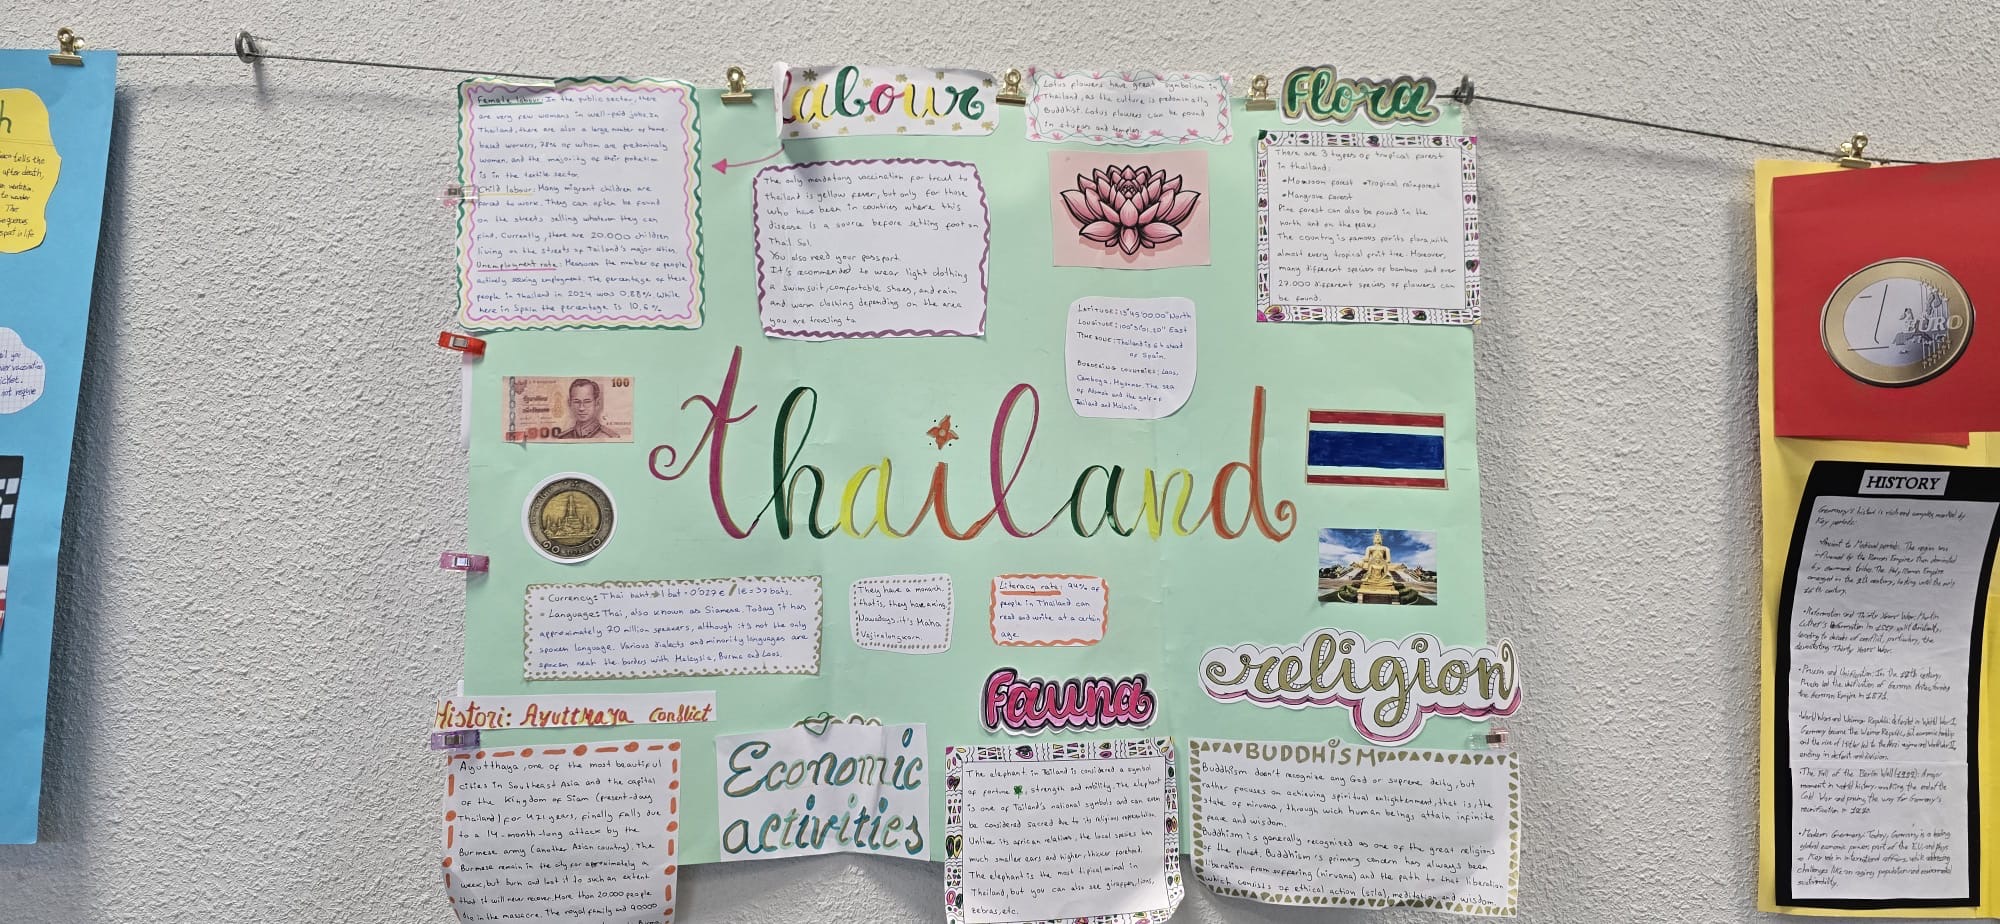 Female labour: In the public sector, there
are very few womans in well-paid jobs. In
Thailand, there are also a large number of home-
based workers, 78% of whom are predominaly
women, and the majority of their protection
is in the textile sector.
Child labour: Many migrant children are
forced to work. They can often be found
on the streets selling whatever they can
find. Currently, there are 20.000 children
living on the streets of Tailand's major cities.
Unemployment rate: Measures the number of people
actively seeking employment. The percentage of these
people in Thailand in 2024 was 0,88%. While
here in Spain the percentage is 10,6%
labour
The only mandatory vaccination for travel to
Thailand is yellow fever, but only for those
who have been in countries where this
disease is a source before setting foot on
Thai Sol.
You also need your passport.
It's recommended to wear light clothing
a swimsuit, comfortable shoes, and rain
and warm clothing depending on the area
you are traveling to
Lotus flowers have great symbolism in
Thailand, as the culture is predominally
Buddhist. Lotus flowers can be found
in stupas and temples
Flora
There are 3 types of tropical forest
in thailand:
•Monsoon forest •Tropical rainforest
•Mangrove forest
Pine forest can also be found in the
north and on the peaks
The country is famous for its flora, with
almost every tropical fruit tree. Moreover,
many different species of bamboo and over
27.000 different species of flowers can
be found.
LATITUDE: 13°45'00.00" North
LONGITUDE: 100°31'01.20" East
TIME ZONE: Thailand is 6h ahead
of Spain.
BORDERING COUNTRIES: Laos,
Camboya, Myanmar. The sea
of Adaman and the golf of
Tailand and Malasia.
100
100
thailand
Currency: Thai baht → 1 bat = 0'027€ / 1€ = 37 bats.
Language: Thai, also known as Siamese. Today it has
approximately 70 million speakers, although it's not the only
spoken language. Various dialects and minority languages are
spoken near the borders with Malaysia, Burma and Laos.
They have a monarch,
that is, they have a king.
Nowadays, it's Maha
Vajiralongkorn.
Literacy rate: 94% of
people in Thailand can
read and write at a certain
age.
Histori: Ayutthaya Conflict
Ayutthaya, one of the most beautiful
cities in Southeast Asia and the capital
of the Kingdom of Siam (present-day
Thailand) for 421 years, finally falls due
to a 14-month-long attack by the
Burmese army (another Asian country). The
Burmese remain in the city for approximately a
week, but burn and loot it to such an extent
that it will never recover. More than 20.000 people
die in the massacre. The royal family and 90000
Economic
activities
Fauna
The elephant in Tailand is considered a symbol
of fortune, strength and nobility. The elephant
is one of Tailand's national symbols and can even
be considered sacred due to its religious repersentation.
Unlike its african relatives, the local species has
much smaller ears and higher, thicker forehead.
The elephant is the most tipical animal in
Thailand, but you can also see giraffes, lions,
zebras, etc.
religion
BUDDHISM
Buddhism doesn't recognize any God or supreme deity, but
rather focuses on achieving spiritual enlightenment, that is, the
state of nirvana, through wich human beings attain infinite
peace and wisdom.
Buddhism is generally recognized as one of the great religions
of the planet. Buddhism's primary concern has always been
liberation from suffering (nirvana) and the path to that liberation
which consists of ethical action (sila), meditation and wisdom.
1 EURO
HISTORY
Germany's histori is rich and complex marked by
Key periods:
•Ancient to Medieval periods: The region was
influenced by the Roman Empire then dominated
by Germanic tribes. The Holy Roman Empire
emerged in the 9th century, lasting until the early
19th century.
•Reformation and Thirty Years' War: Martin
Luther's Reformation in 1517 split Christianity,
leading to decades of conflict, particulary, the
devastating Thirty Years' War.
•Prussia and Unification: In the 19th century,
Prussia led the unification of German states, forming
the German Empire in 1871.
•World Wars and Weimar Republic: defeated in World War I,
Germany became the Weimar Republic, but economic hardship
and the rise of Hitler led to the Nazi regime and World War II,
ending in defeat and division.
•The Fall of the Berlin Wall (1989): A major
moment in world history, marking the end of the
Cold War and paving the way for Germany's
reunification in 1990.
•Modern Germany: Today, Germany is a leading
global economic power, part of the EU, and plays
a Key role in international affairs, while addressing
challenges like an ageing population and environmental
sustainability.